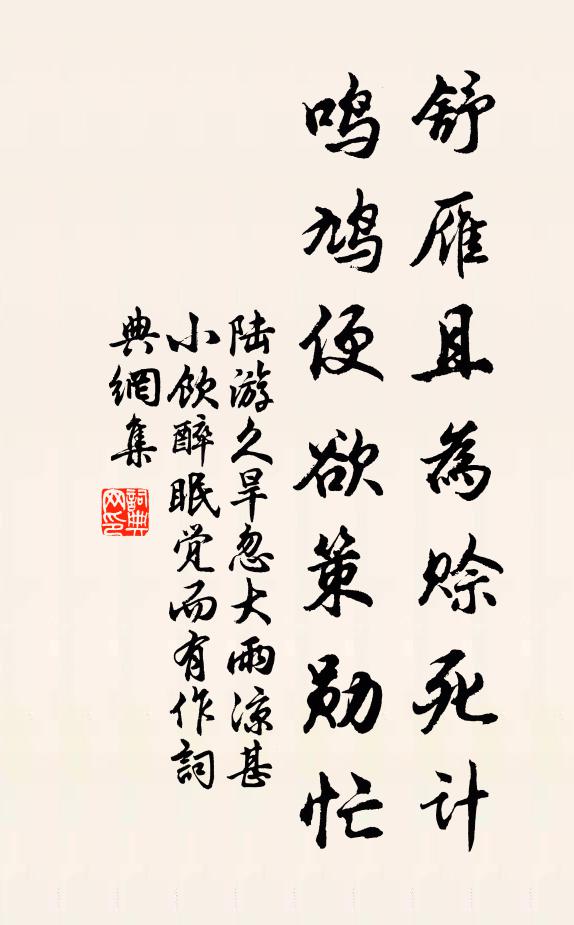 舒雁且為賒死计
鸣鸠便欲策勋忙
陆游久旱忽大雨凉甚
小饮醉眠觉而有作詞
典網集
詞典网印